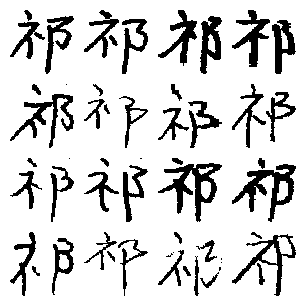 祁祁祁祁
祁祁祁祁
祁祁祁祁
祁祁祁祁